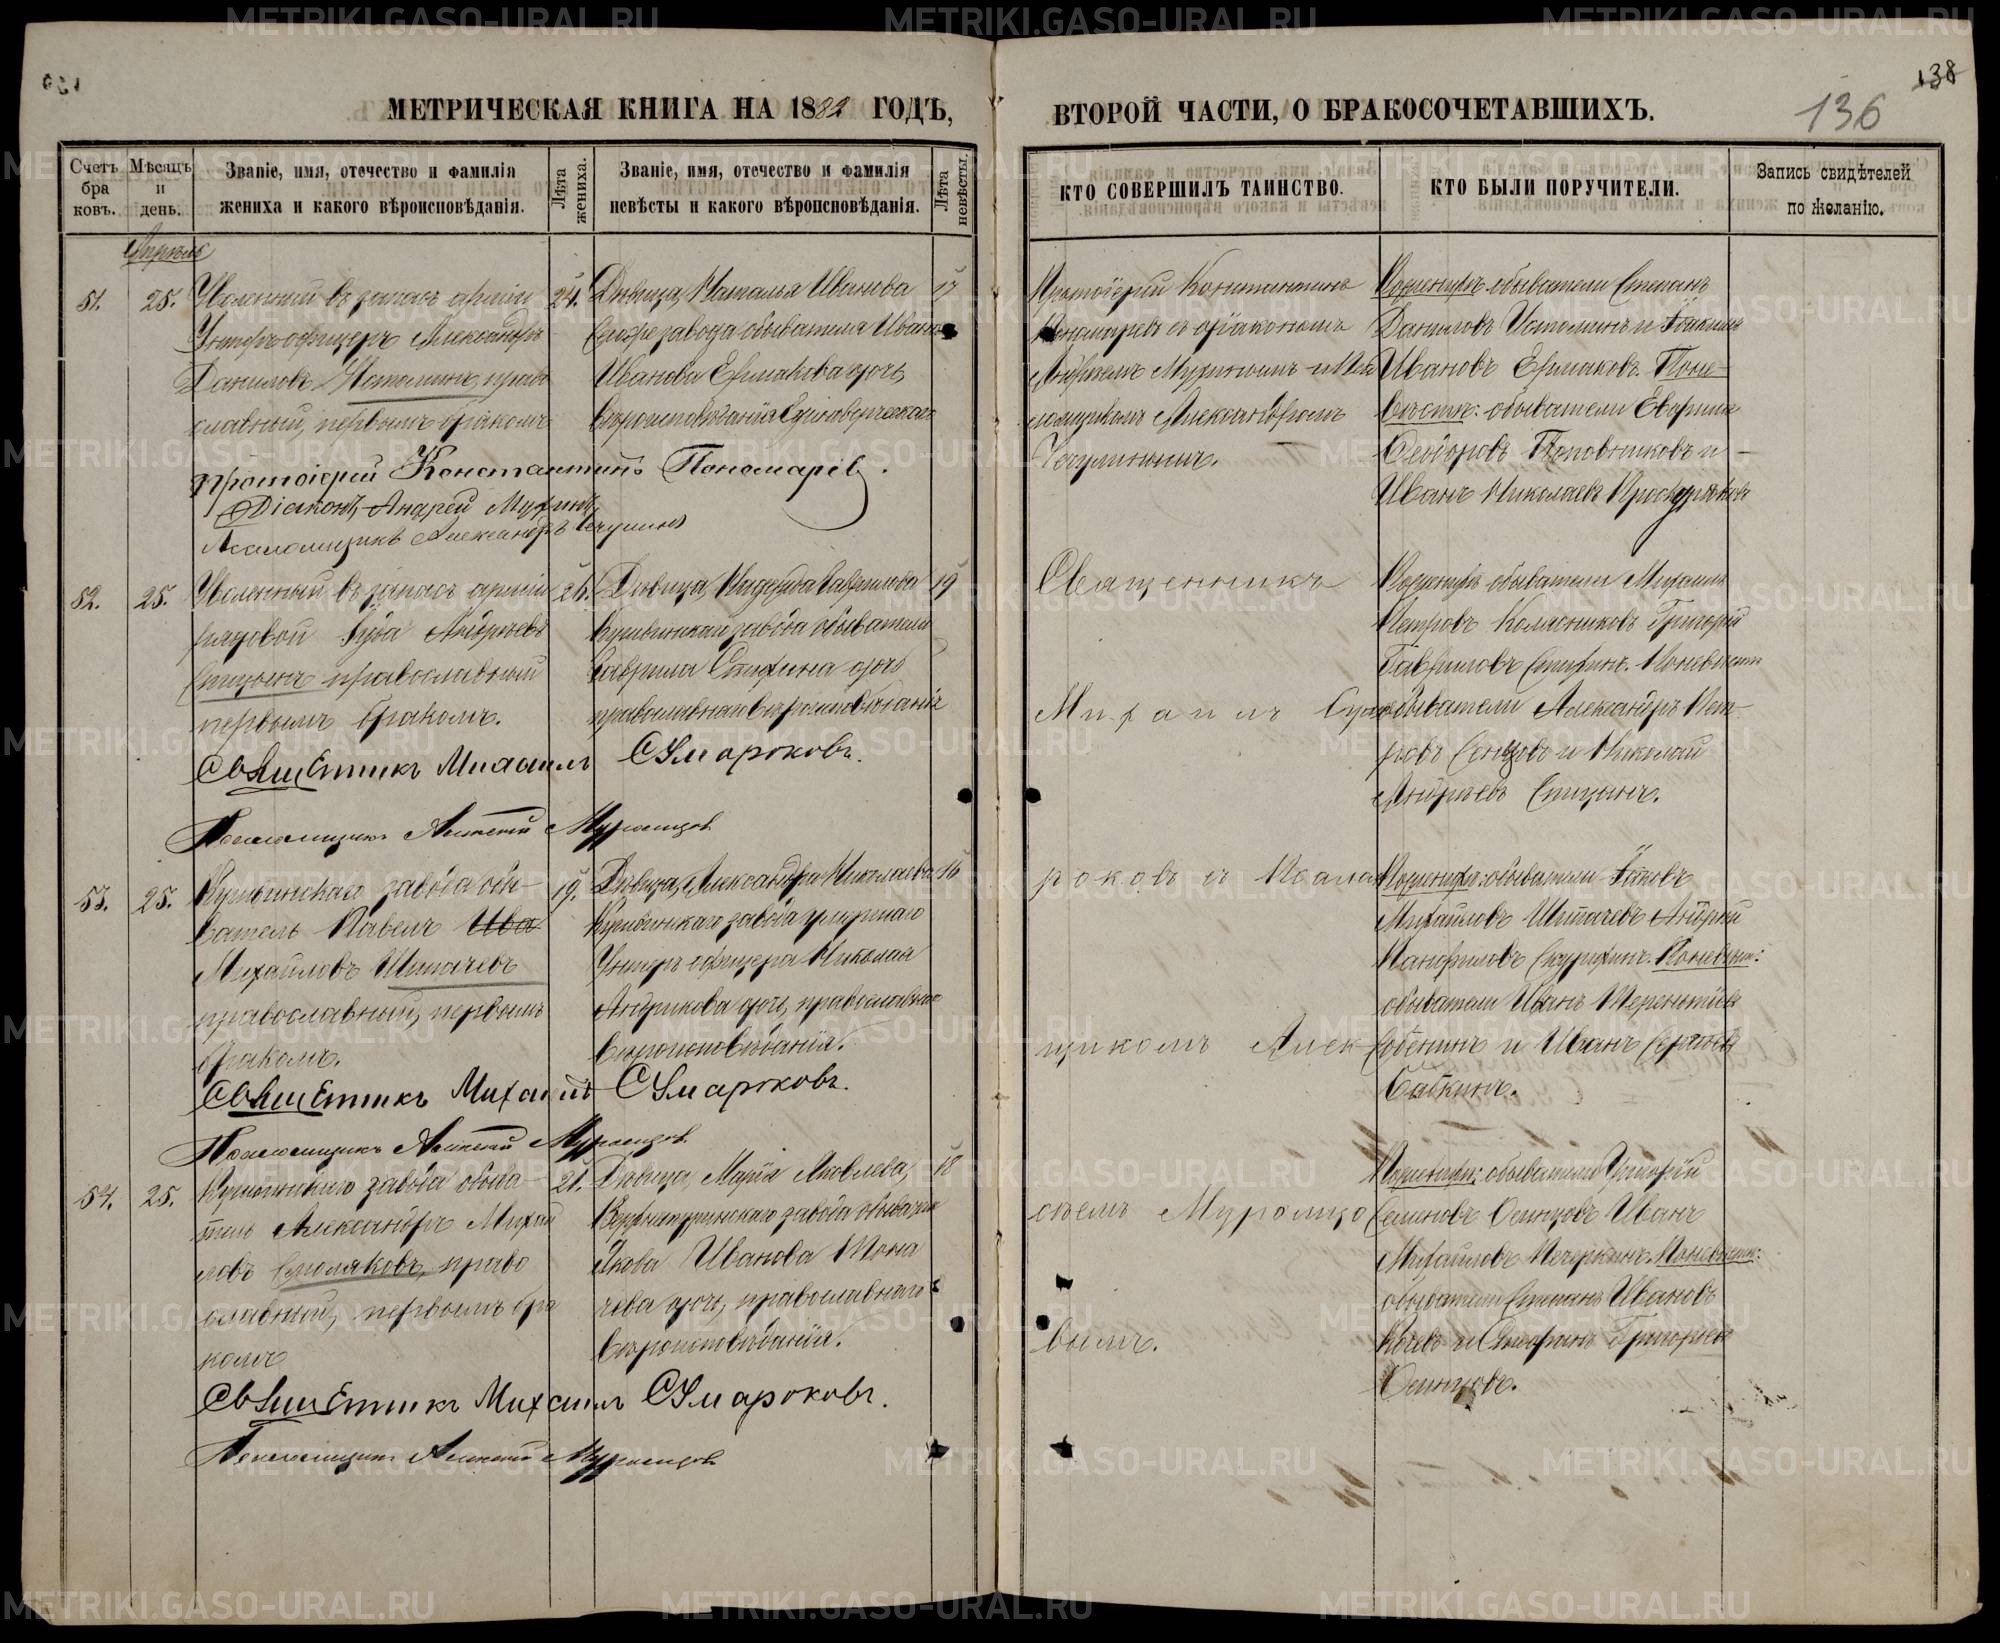 МЕТРИЧЕСКАЯ КНИГА НА 1882 ГОДЪ,
ВТОРОЙ ЧАСТИ, О БРАКОСОЧЕТАВШИХЪ.
138
136
Счетъ браковъ.
Мѣсяцъ и день.
Званіе, имя, отечество и фамилія
жениха и какого вѣроисповѣданія.
Лѣта жениха.
Званіе, имя, отечество и фамилія
невѣсты и какого вѣроисповѣданія.
Лѣта невѣсты.
КТО СОВЕРШИЛЪ ТАИНСТВО.
КТО БЫЛИ ПОРУЧИТЕЛИ.
Запись свидѣтелей
по желанію.
Апрѣль
51.
25.
Уволенный въ запасъ арміи
Унтеръ офицеръ Александръ
Даниловъ Истоминъ право
славный, первымъ бракомъ
24.
Дѣвица, Наталья Иванова
завода обывателя Ивана
Иванова Ермакова дочь,
вѣроисповѣданія Единовѣрческаго
17
Протоіерей Константинъ
Пономаревъ съ діакономъ
Андреемъ Мухинымъ и Пса
ломщикомъ Александромъ
Чечулинымъ.
Поженихѣ: обыватели Степанъ
Даниловъ Истоминъ и Іоакимъ
Ивановъ Ермаковъ. Поне-
вѣстѣ: обыватели
Ѳеодоровъ Поповниковъ и
Иванъ Николаевъ Проскуряковъ
протоіерей Константинъ Пономарев.
Діаконъ Андрей Мухинъ
Псаломщикъ Александръ Чечулинъ
52.
25.
Уволенный въ запасъ арміи
рядовой Андреевъ
Спицынъ православный
первымъ бракомъ.
26.
Дѣвица, Надежда Гаврилова
Кушвинскаго завода обывателя
Гаврила Стифина дочь
православнаго вѣроисповѣданія
19
Священникъ
Михаилъ Сума
Поженихѣ обыватели Михаилъ
Петровъ Колясниковъ Григорій
Гавриловъ Стифинъ. Поневѣстѣ
обыватели Александръ Пет-
ровъ и Николай
Андреевъ Спицынъ.
Священникъ Михаилъ Сумароковъ.
Псаломщикъ Алексѣй Муромцовъ
53.
25.
Кушвинскаго завода обы-
ватель Павелъ Ива
Михайловъ Шипачевъ
православный, первымъ
бракомъ.
19.
Дѣвица, Александра Николаева
Кушвинскаго завода
Унтеръ офицера Николая
Андрикова дочь, православнаго
вѣроисповѣданія.
16
роковъ съ Псалом
щикомъ Алек
Поженихѣ: обыватели Іаковъ
Михайловъ Шипачевъ Андрей
Панфиловъ Поневѣстѣ:
обыватели Иванъ Терентіевъ
и Иванъ Сергѣевъ
Бабкинъ.
Священникъ Михаилъ Сумароковъ.
Псаломщикъ Алексѣй Муромцовъ
54.
25.
Кушвинскаго завода обыва-
тель Александръ Михай
ловъ Смоляковъ, право
славный, первымъ бра
комъ
21.
Дѣвица, Марія Яковлева,
Верхнетуринскаго завода обывателя
Якова Иванова
дочь, православнаго
вѣроисповѣданія.
18
сѣемъ Муромцо
вымъ.
Поженихѣ: обыватели Григорій
Семеновъ Осинцовъ Иванъ
Михайловъ Печеркинъ. Поневѣстѣ:
обыватели Степанъ Ивановъ
и Григорьевъ
Осинцовъ.
Священникъ Михаилъ Сумароковъ.
Псаломщикъ Алексѣй Муромцовъ
METRIKI.GASO-URAL.RU